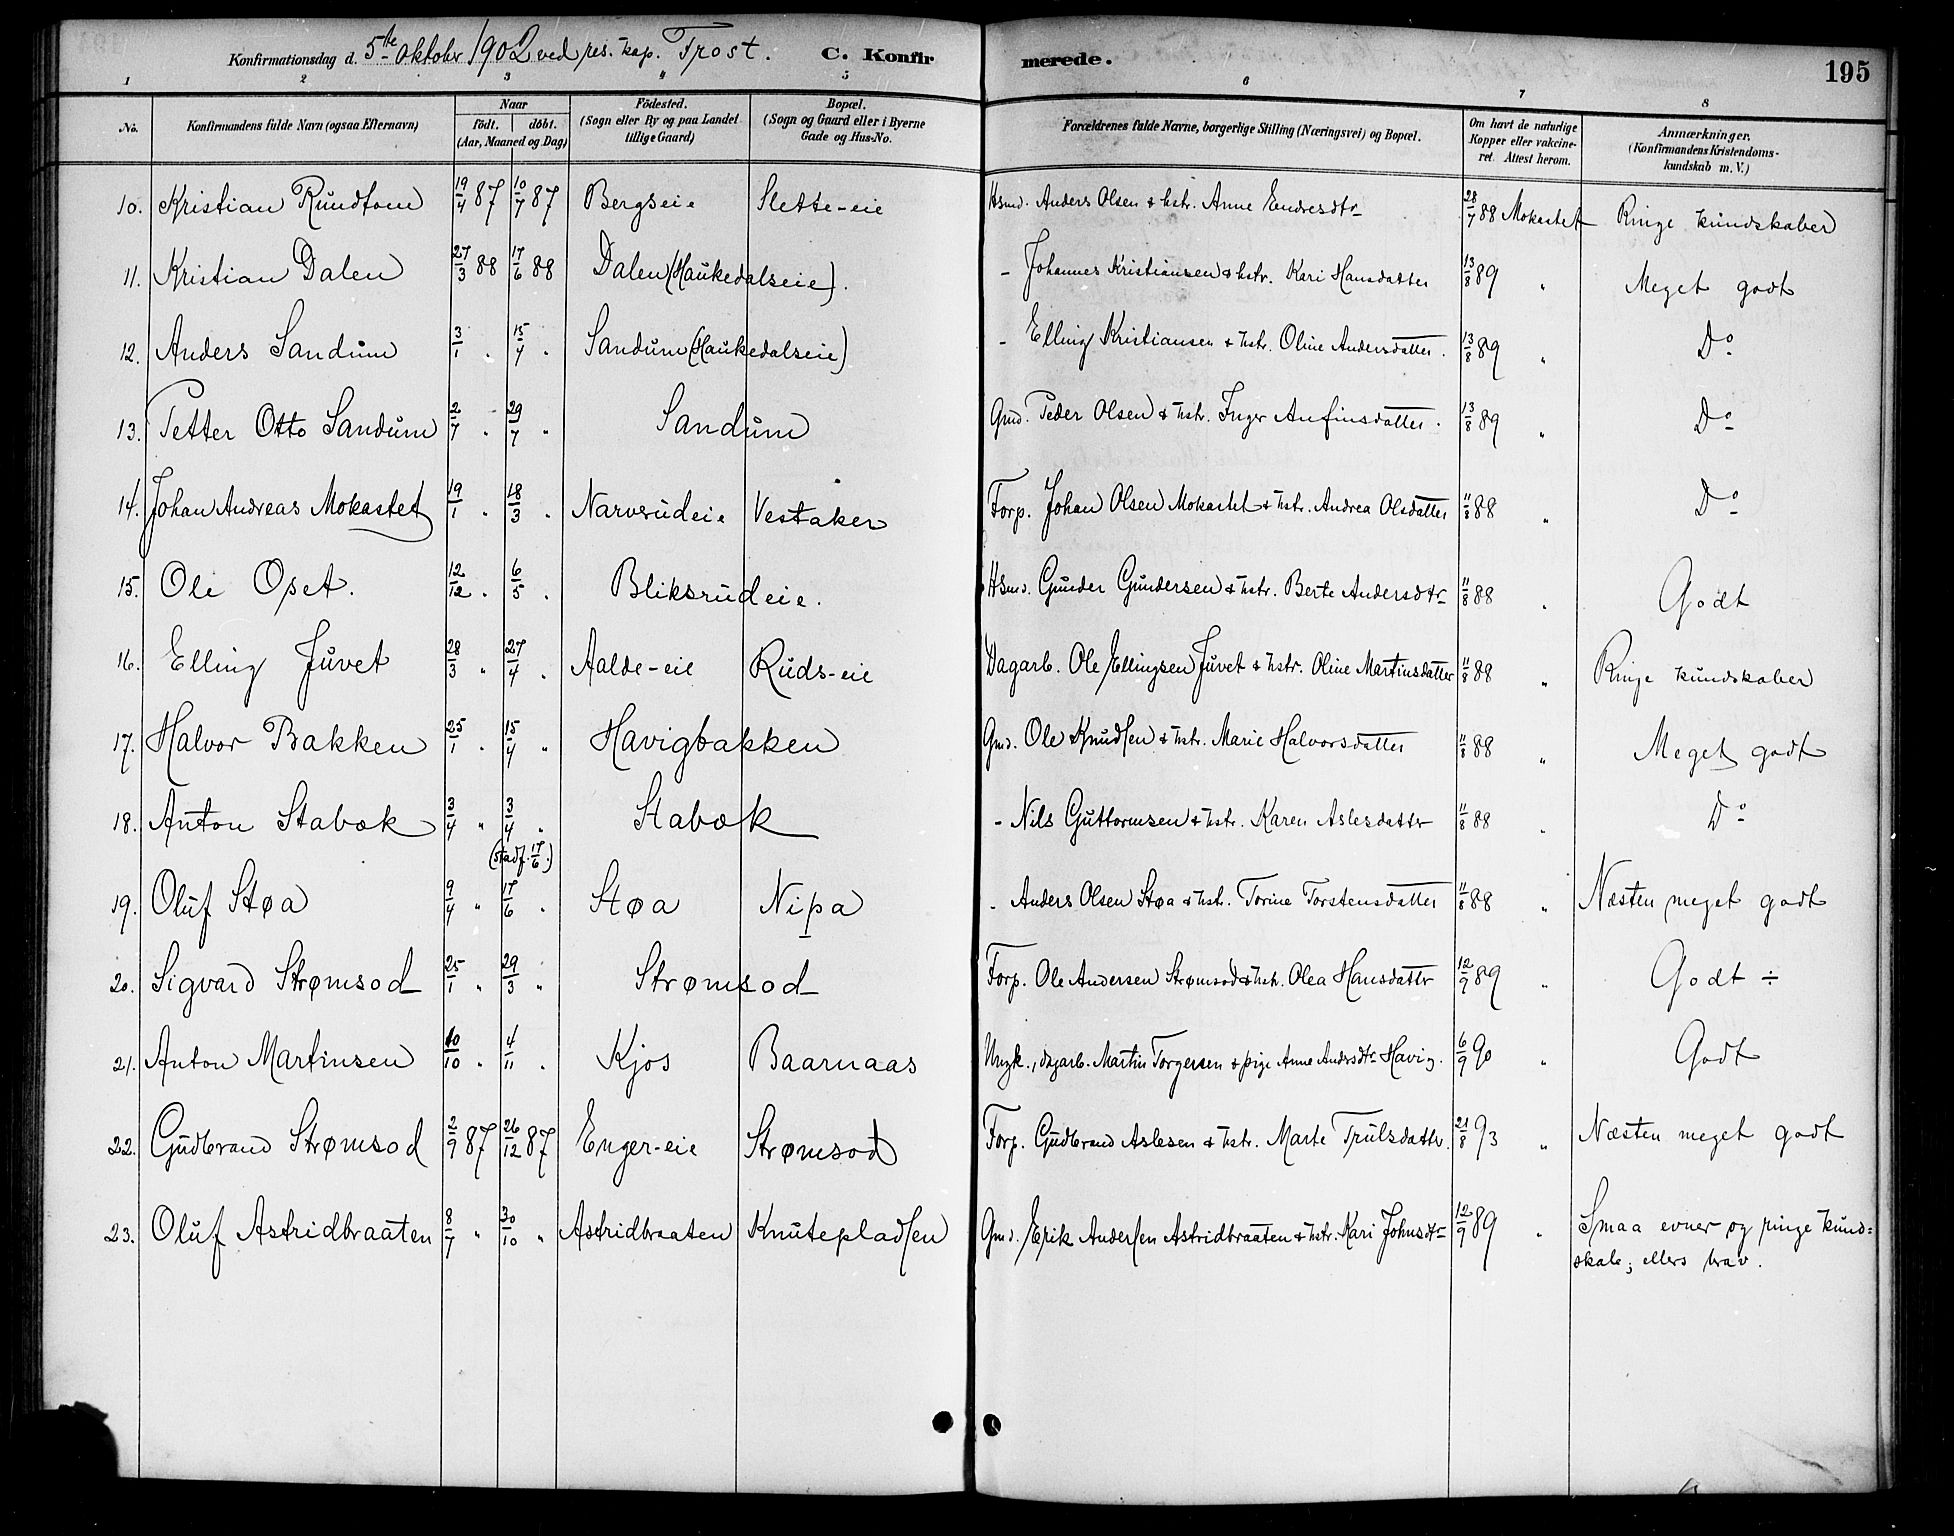 Konfirmationsdag d. 5te Oktobr 1902 ved res. kap. Trost. C. Konfirmerede. 195
1 2 3 4 5 6 7 8
No. Konfirmandens fulde Navn (ogsaa Efternavn) Naar födt. döbt. (Aar, Maaned og Dag) Födested. (Sogn eller By og paa Landet tillige Gaard) Bopæl. (Sogn og Gaard eller i Byerne Gade og Hus-No. Forældrenes fulde Navne, borgerlige Stilling (Næringsvei) og Bopæl. Om havt de naturlige Kopper eller vakcineret. Attest herom. Anmærkninger. (Konfirmandens Kristendomskundskab m. V.)
10. Kristian Rundtom 19/4 87 10/7 87 Bergseie Slette-eie Hsmd. Anders Olsen & hstr. Anne Endresdtr 28/7 88 Mokastet Ringe kundskaber
11. Kristian Dalen 27/3 88 17/6 88 Dalen (Haukedalseie). - Johannes Kristiansen & hstr. Kari Hansdatter 13/8 89 " Meget godt
12. Anders Sandum 3/1 " 15/4 " Sandum (Haukedalseie) - Elling Kristiansen & hstr. Oline Andersdatter. 13/8 89 " Do
13. Petter Otto Sandum 2/7 " 29/7 " Sandum Gmd. Peder Olsen & hstr. Inger Anfinsdatter. 13/8 89 " Do
14. Johan Andreas Mokastet 19/1 " 18/3 " Narvrudeie Vestaker Forp. Johan Olsen Mokastet & hstr. Andrea Olsdatter 11/8 88 " Do
15. Ole Opset. 12/12 " 6/5 " Bliksrudeie. Hsmd. Gunder Gundersen & hstr. Berte Andersdtr 11/8 88 " Godt
16. Elling Juvet 28/3 " 27/4 " Aalde-eie Ruds-eie Dagarb. Ole Ellingsen Juvet & hstr. Oline Martinsdatter 11/8 88 " Ringe kundskaber
17. Halvor Bakken 25/1 " 15/4 " Havigbakken Gmd. Ole Knudsen & hstr. Marie Halvorsdatter 11/8 88 " Meget godt
18. Anton Stabæk 3/4 " 3/4 " Stabæk - Nils Guttormsen & hstr. Karen Aslesdattr 11/8 88 " Do
(stadf. 17/6.)
19. Oluf Støa 9/4 " 17/6 " Støa Nipa - Anders Olsen Støa & hstr. Torine Torstensdatter 11/8 88 " Næsten meget godt
20. Sigvard Strømsod 25/1 " 29/3 " Strømsod Forp. Ole Andersen Strømsod & hstr. Olea Hansdattr 12/9 89 " Godt ÷
21. Anton Martinsen 10/10 " 4/11 " Kjos Baarnaas Ungk., dagarb. Martin Torgersen & pige Anne Andersdtr Havig. 6/9 90 " Godt
22. Gudbrand Strømsod 2/9 87 26/12 87 Enger-eie Strømsod Forp. Gudbrand Aslesen & hstr. Marte Trulsdattr. 21/8 93 " Næsten meget godt
23. Oluf Astridbraaten 8/7 " 30/10 " Astridbraaten Knutepladsen Gmd. Erik Andersen Astridbraaten & hstr. Kari Johnsdtr 12/9 89 " Smaa evner og ringe kund=
skab; ellers brav.